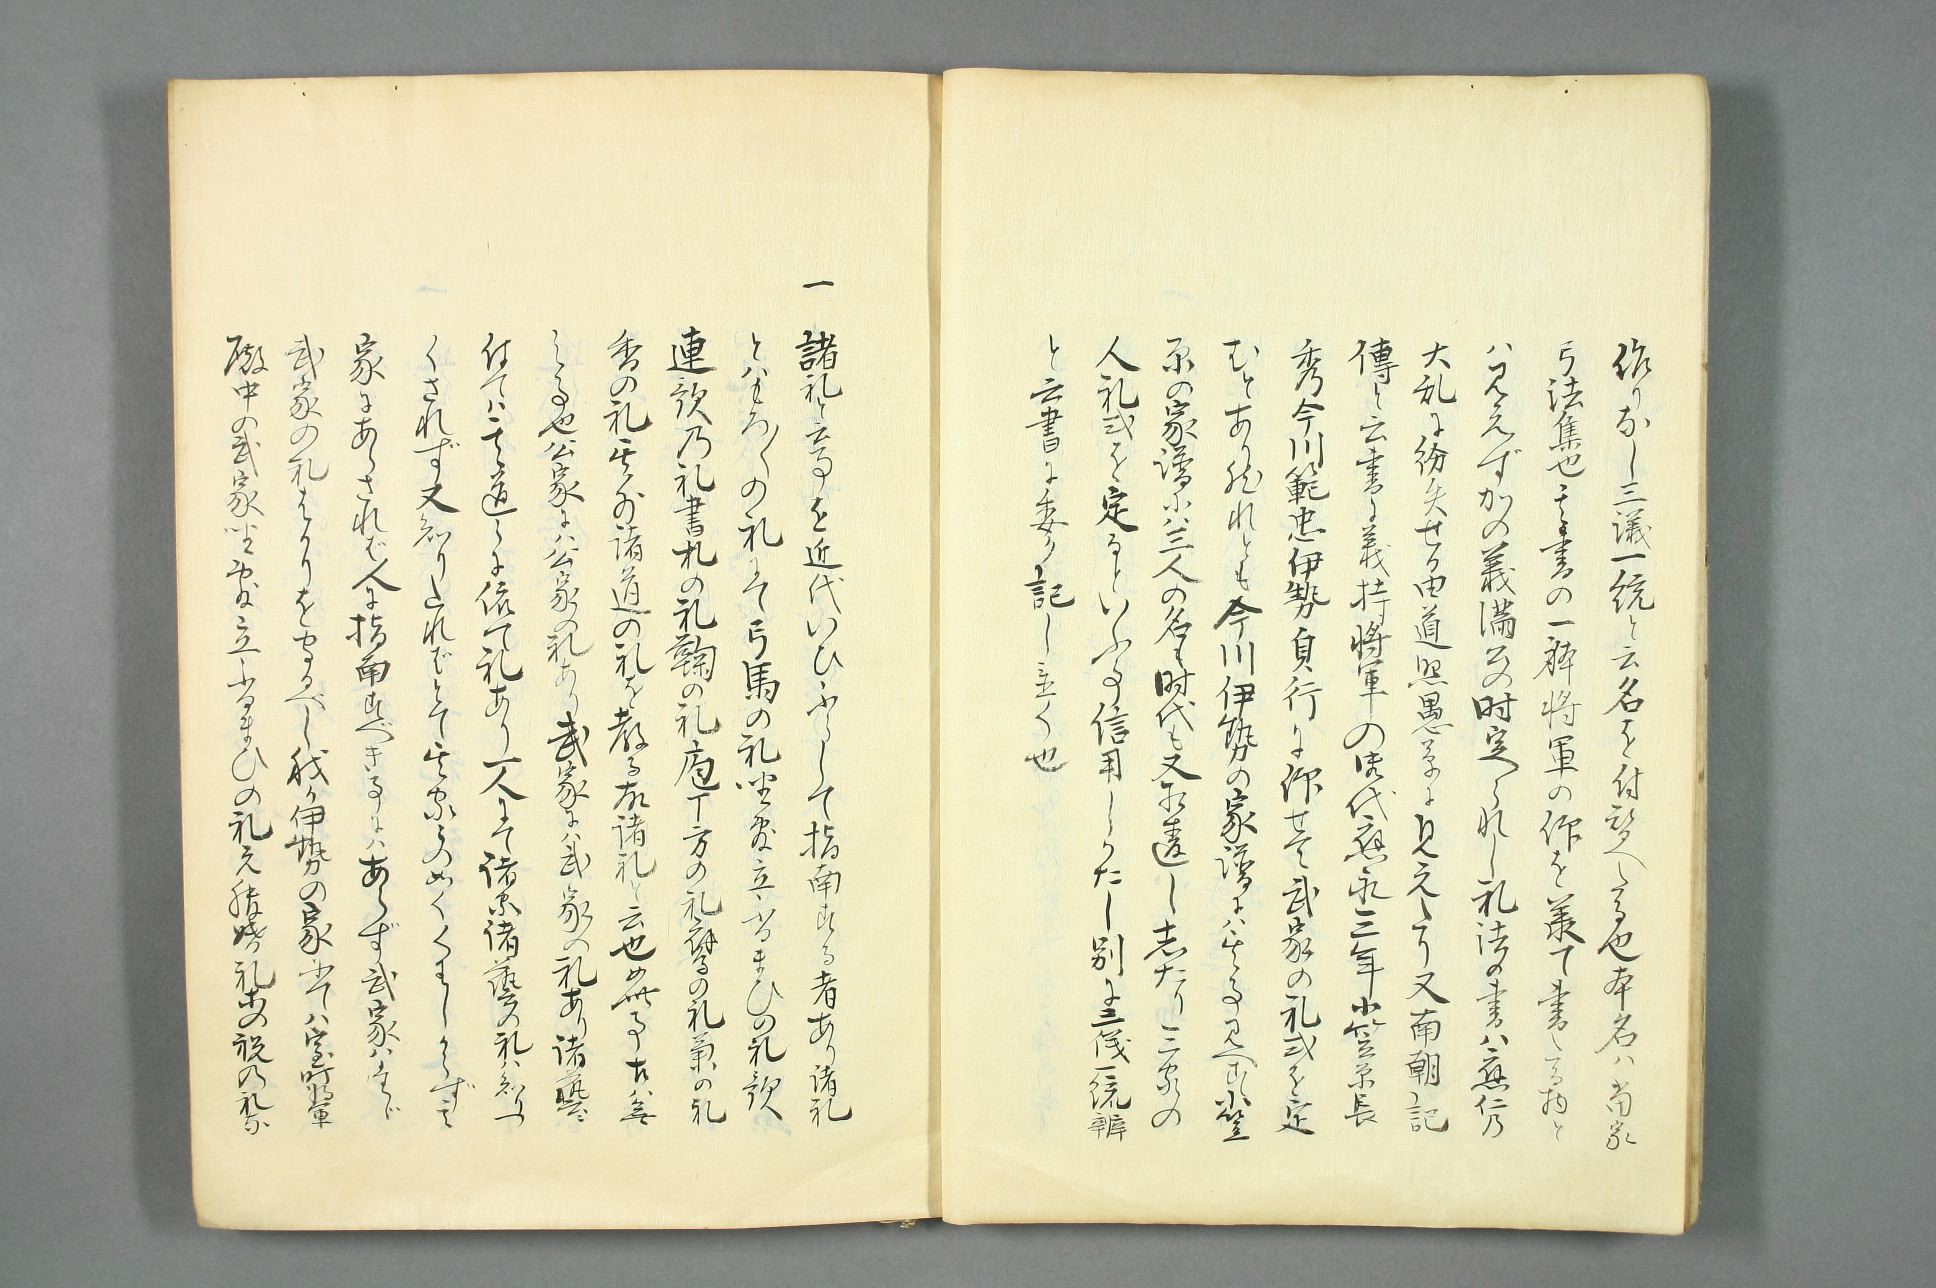 作りなし三議一統と云名を付替へたる也本名ハ当家
弓法集也其書の一躰将軍の作を兼て書たる物と
ハ見えずかの義満公の時定られし礼法の書ハ應仁乃
大乱に紛失せる由道照愚草に見えたり又南朝記
傳と云書に義持将軍の御代應永三年小笠原長
秀今川範忠伊勢貞行に仰せて武家の礼式を定
むとあり然れとも今川伊勢の家譜にハ其事見へす小笠
原の家譜にハ三人の名も時代も又相違し志たり三家の
人礼式を定るといふ事信用しかたし別に三儀一統辨
と云書に委く記し置く也
一 諸礼と云事を近代いひふらして指南する者あり諸礼
とハもろ〳〵の礼にて弓馬の礼坐敷立ふるまひの礼歌
連歌乃礼書札の礼鞠の礼庖丁方の礼鷹の礼碁の礼
香の礼其外諸道の礼を教る故諸礼と云也如此事古ハ無
之事也公家にハ公家の礼あり武家にハ武家の礼あり諸藝ニ
付てハ其道々に依て礼あり一人にて諸家諸藝の礼ハ知りつ
くされず又知りたれバとて其家々の如くくわしからず其
家にあらされバ人に指南すべき事にハあらず武家ハ先ツ
武家の礼をばかりを守るべし我か伊勢の家にてハ室町将軍
殿中の武家坐敷立ふるまひの礼元服婚礼等の祝乃礼な